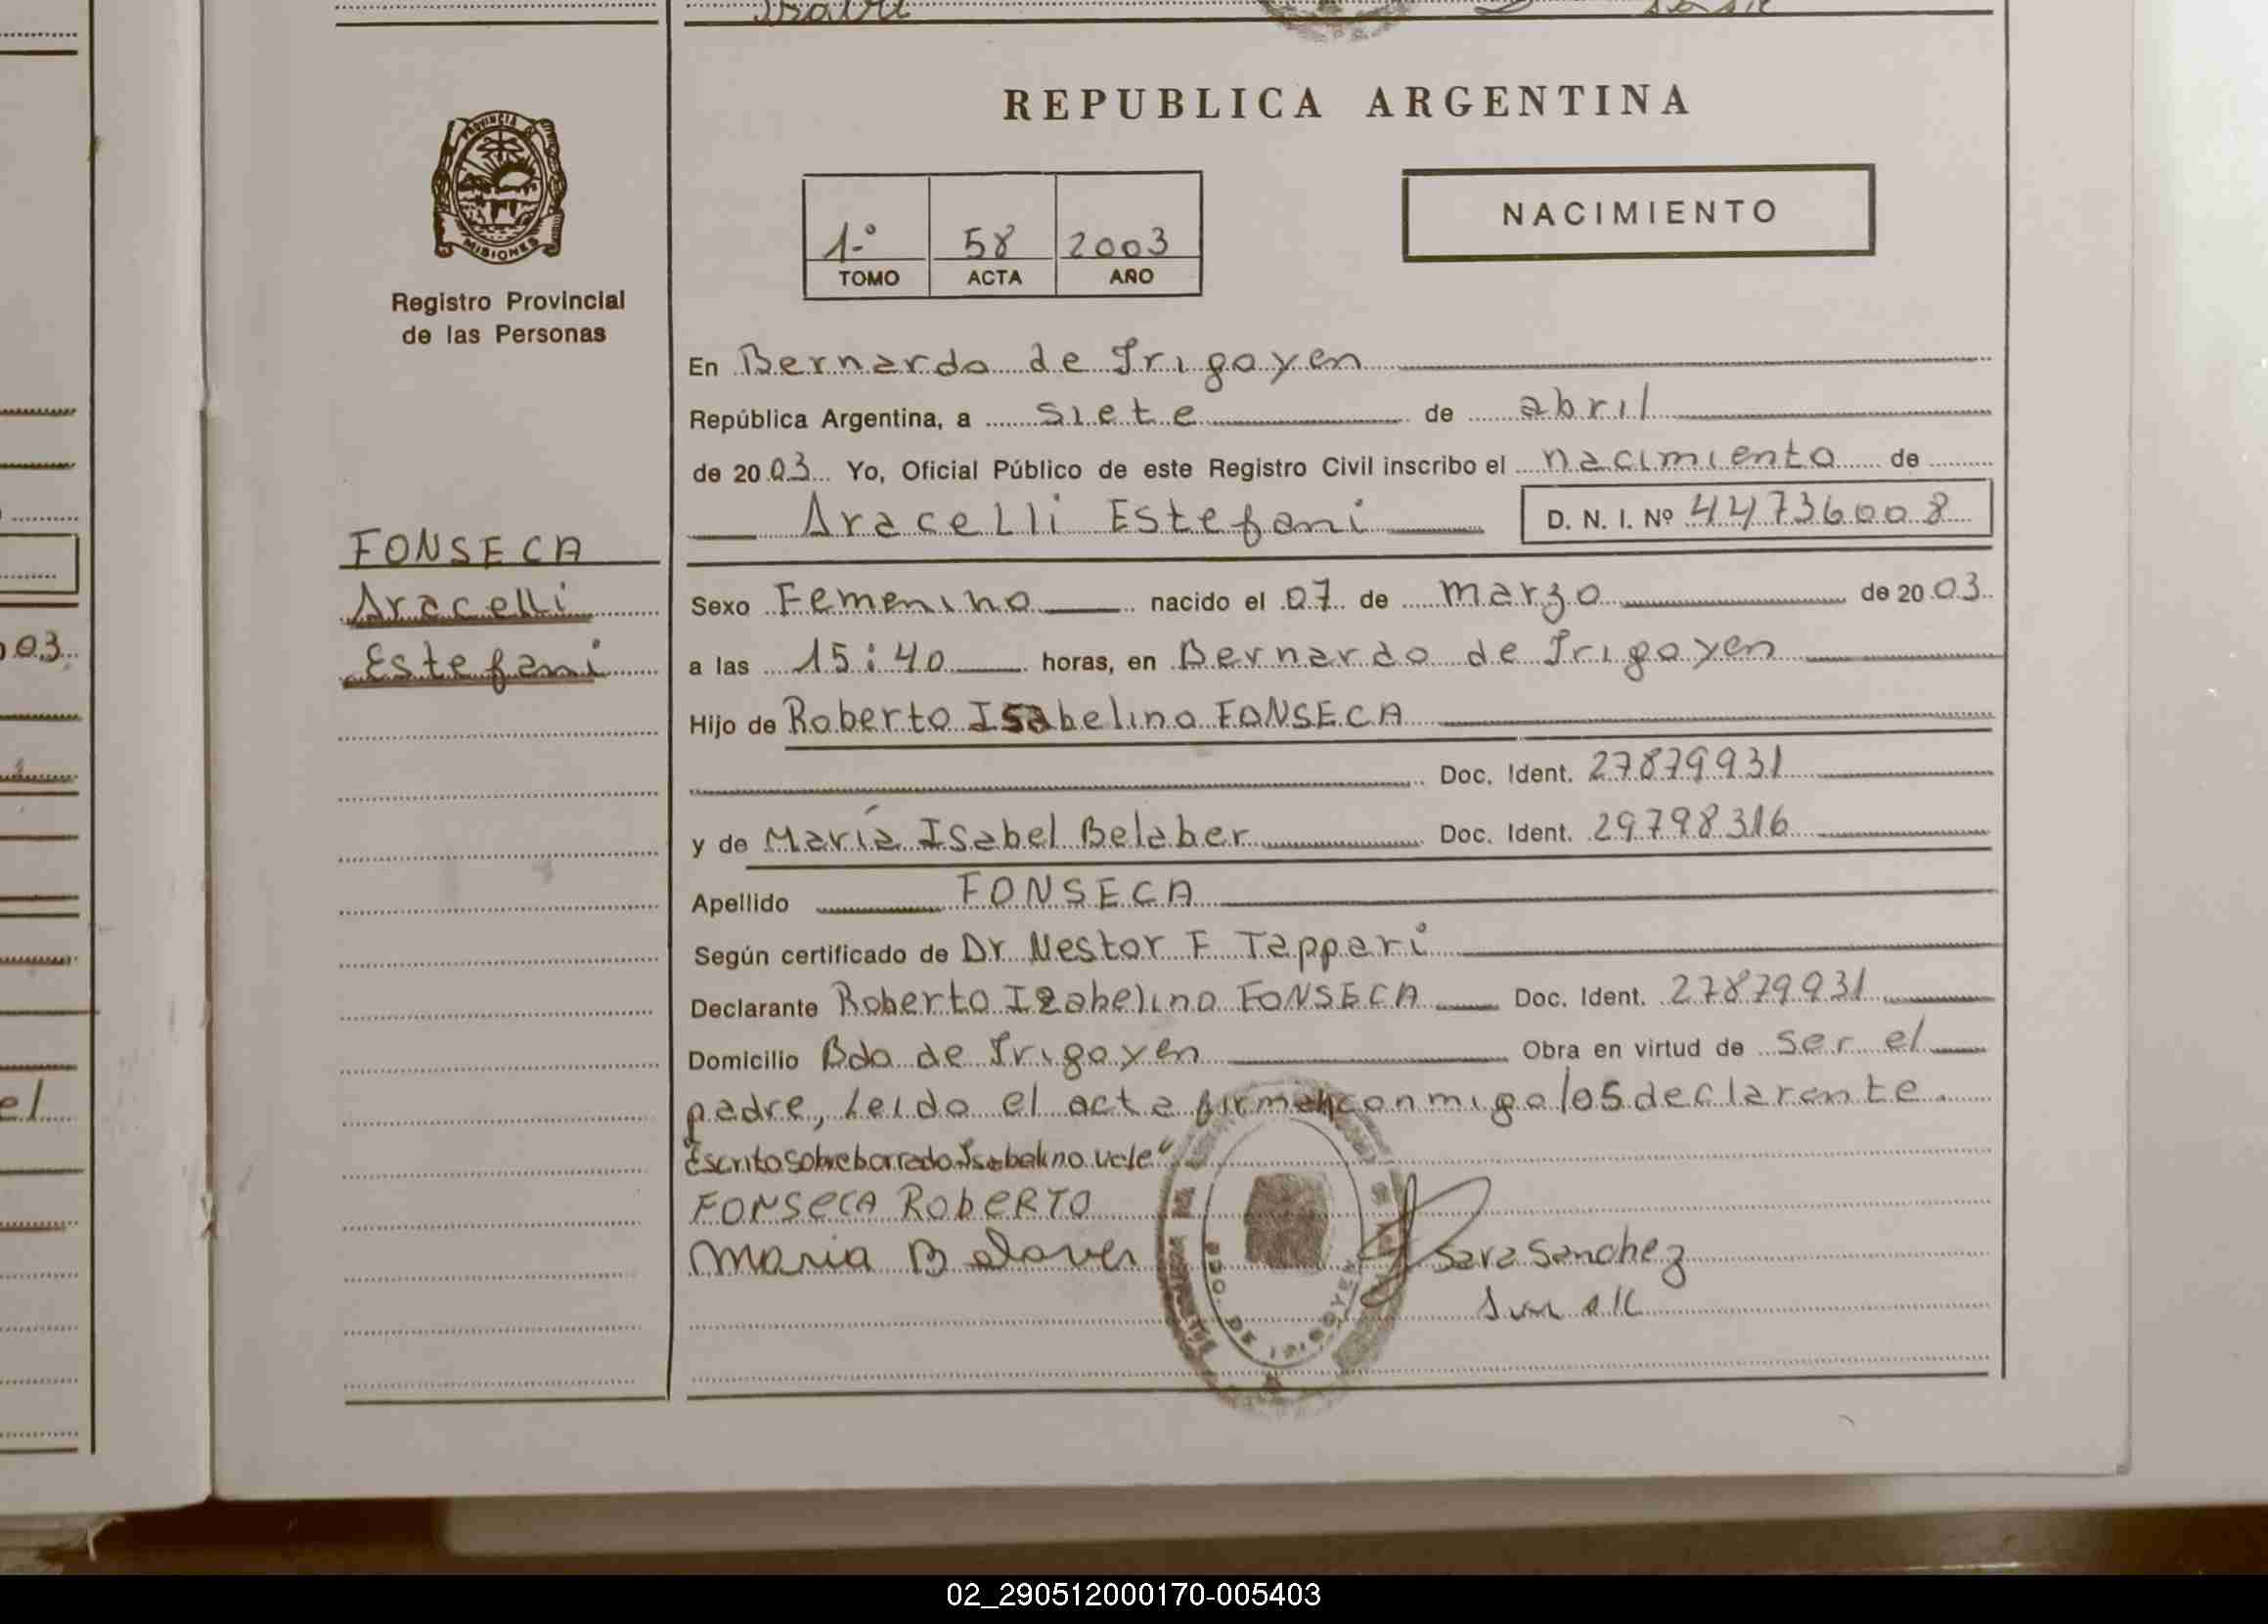 REPUBLICA ARGENTINA
PROVINCIA DE
MISIONES
Registro Provincial
de las Personas
1º 58 2003
TOMO ACTA AÑO
NACIMIENTO
En Bernardo de Irigoyen
República Argentina, a siete de abril
de 2003 Yo, Oficial Público de este Registro Civil inscribo el nacimiento de
Aracelli Estefani D. N. I. Nº 44736008
FONSECA
Aracelli
Estefani
Sexo Femenino nacido el 07 de marzo de 2003
a las 15:40 horas, en Bernardo de Irigoyen
Hijo de Roberto Isabelino FONSECA
Doc. Ident. 27879931
y de María Isabel Belaber Doc. Ident. 29798316
Apellido FONSECA
Según certificado de Dr Nestor F Tappari
Declarante Roberto Izabelino FONSECA Doc. Ident. 27879931
Domicilio Bdo de Irigoyen Obra en virtud de ser el
padre, leido el acta firman conmigo los declarante.
"Escrito sobreborrado Isabelino vale"
FONSECA ROBERTO
Maria Belaver
Sara Sanchez
BDO. DE IRIGOYEN
03
el
02_290512000170-005403